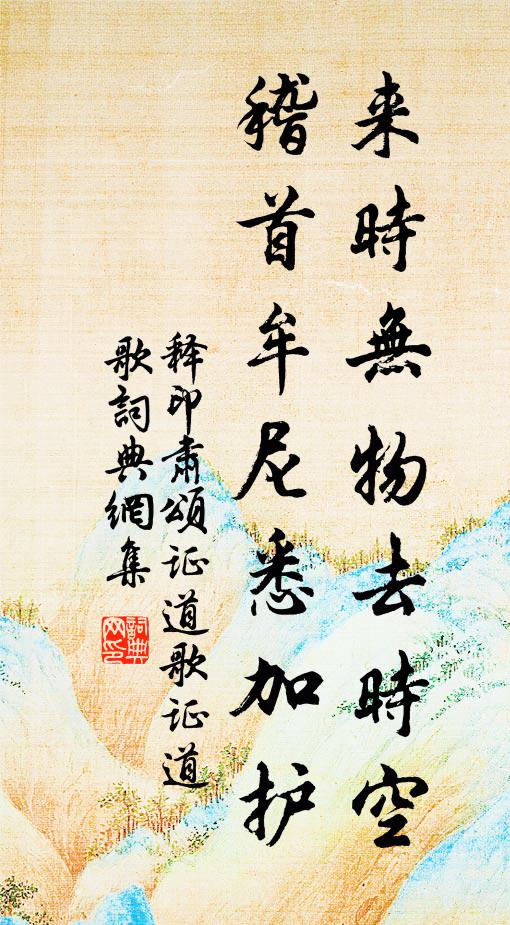 来時無物去時空
稽首牟尼悉加护
释印肃颂证道歌证道
歌詞典網集
詞典